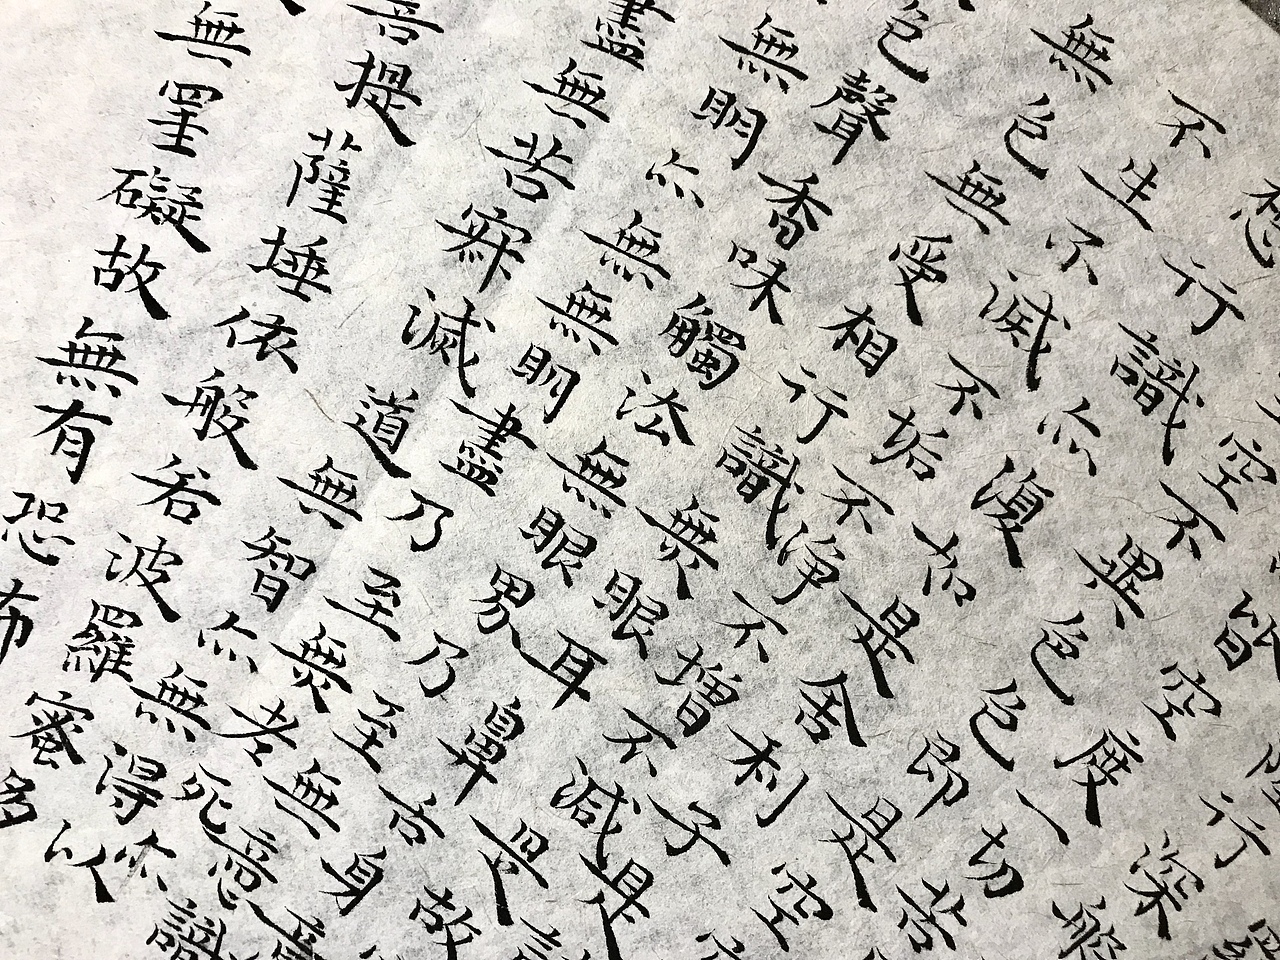 行深般
皆空度一切苦
空不異色色即是空
想行識亦復如是舍利子是
不生不滅不垢不淨不增不減是故
無色無受相行識無眼耳鼻舌身意
色聲香味觸法無眼界乃至無意識
無明亦無無明盡乃至無老死亦
盡無苦寂滅道無智亦無得以
菩提薩埵依般若波羅蜜多
無罣礙故無有恐怖